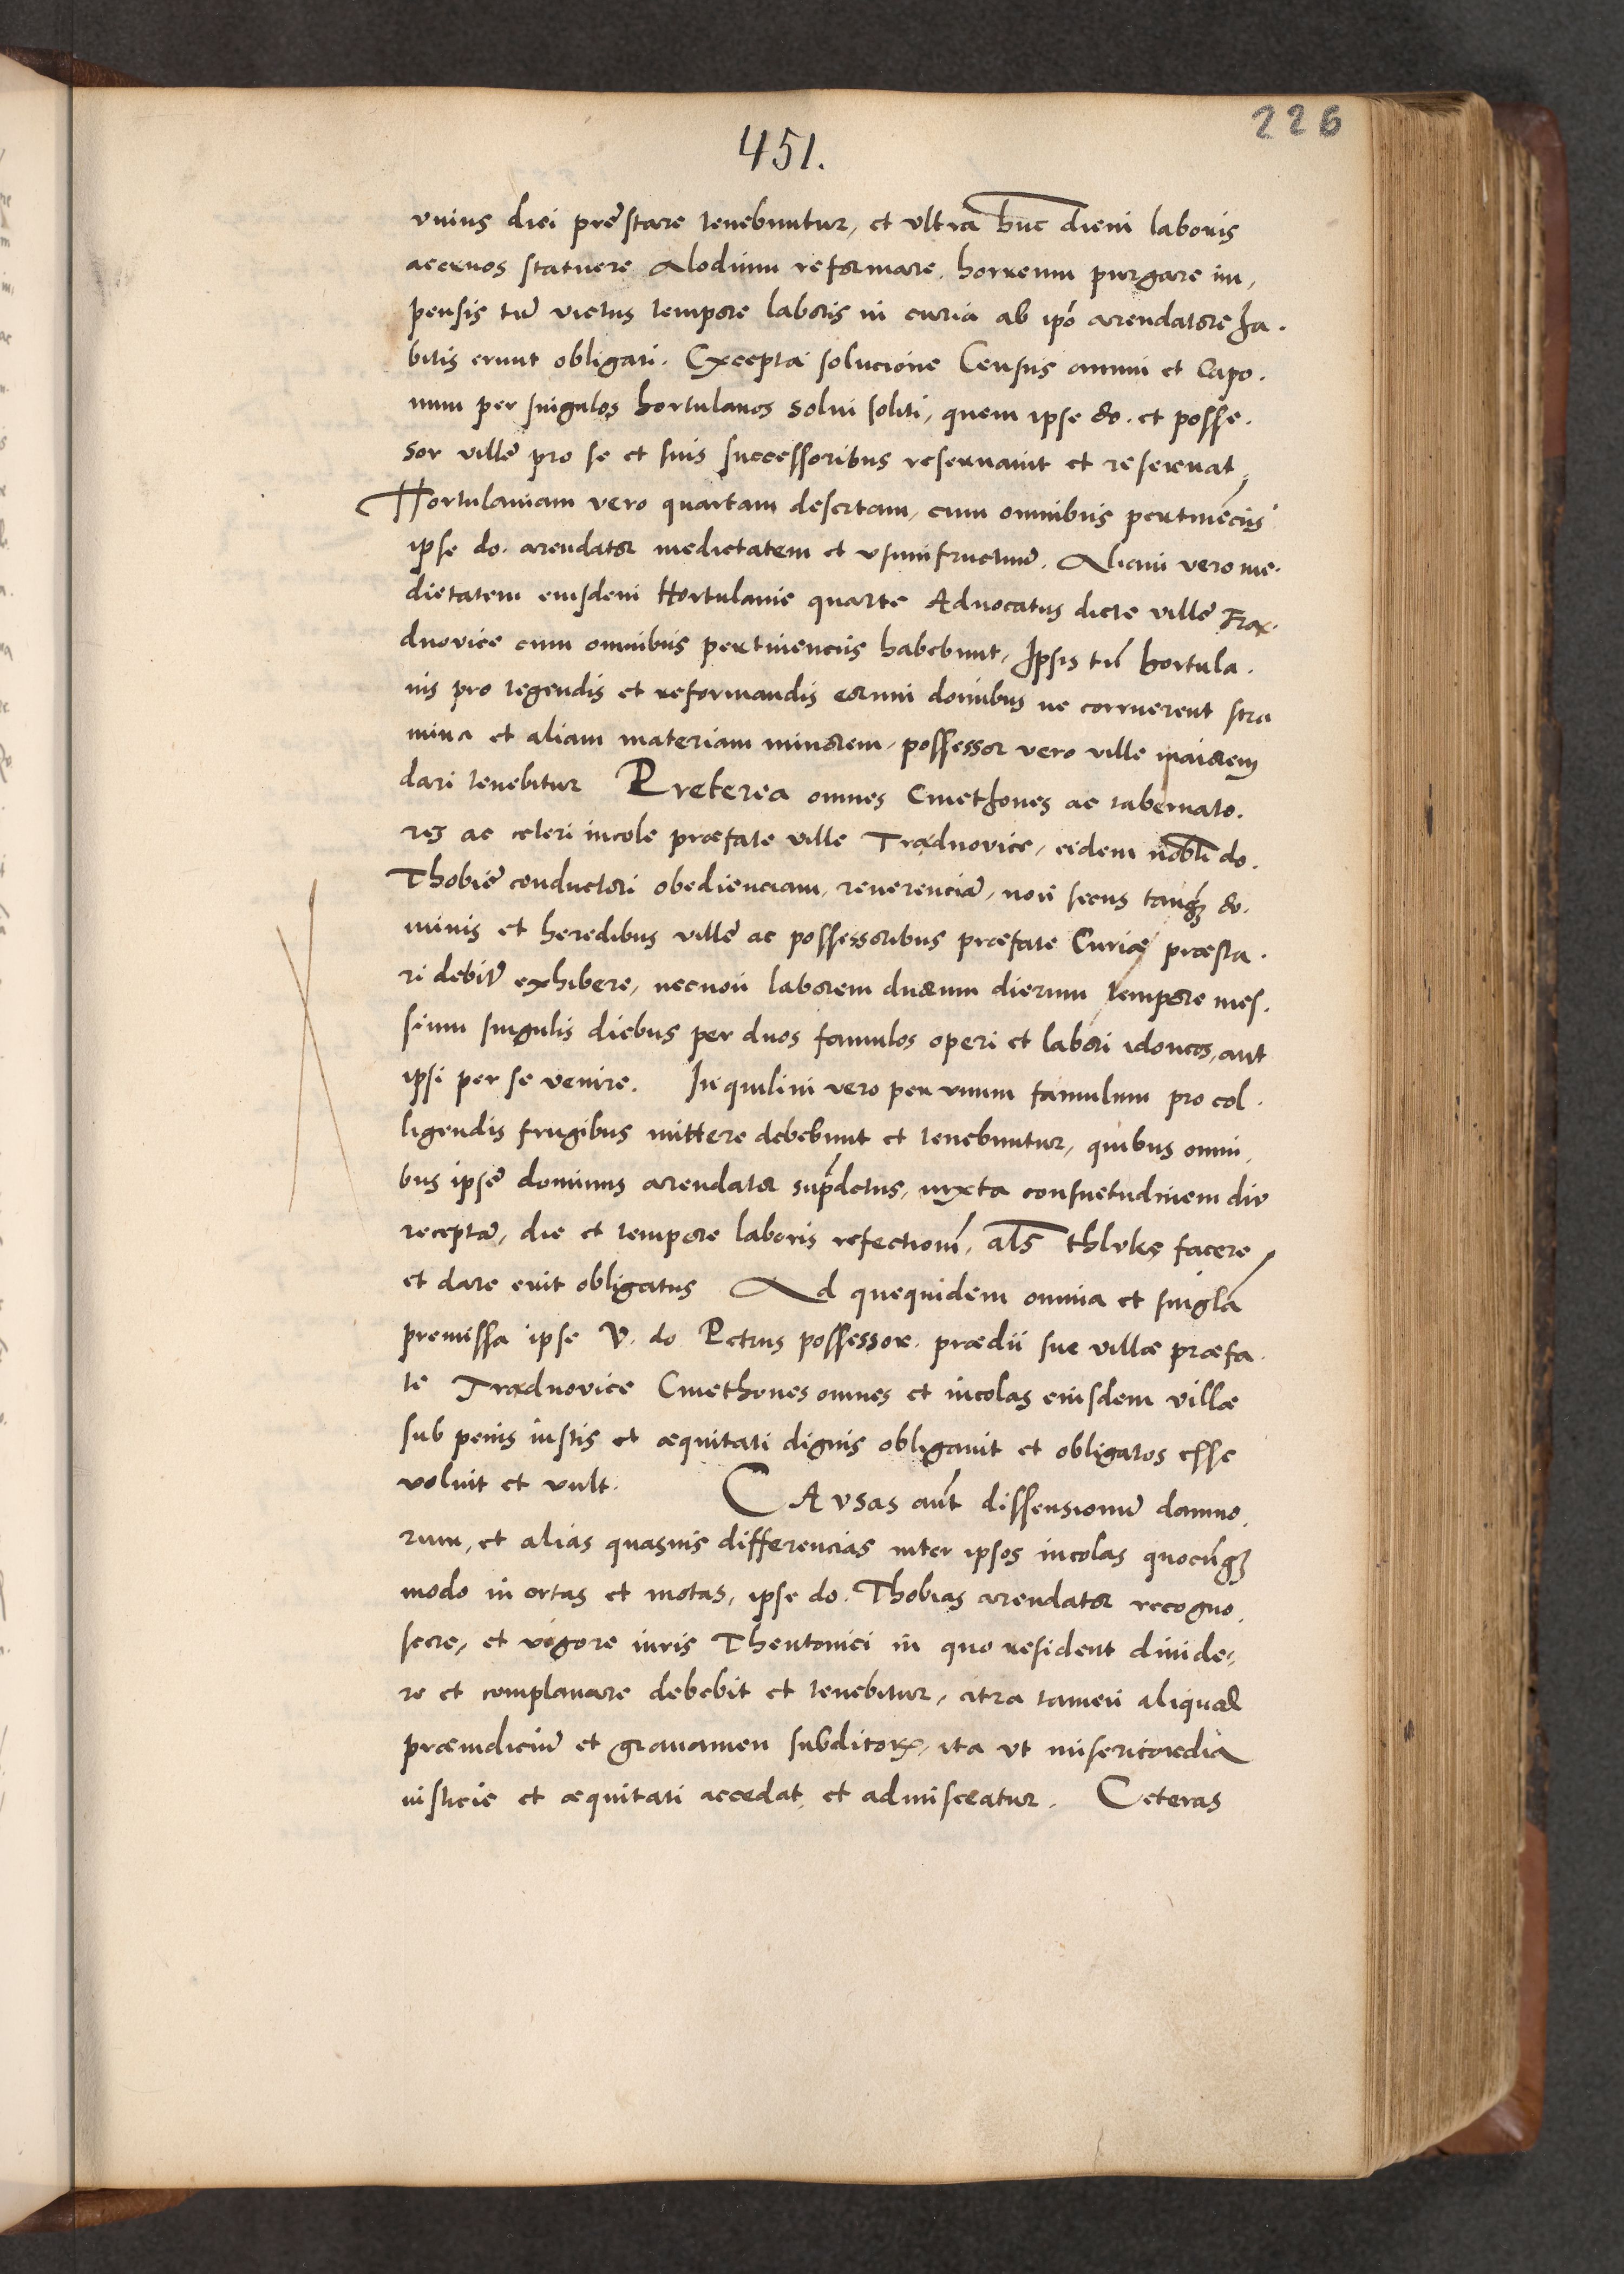 226
451.
vnius diei prestare tenebuntur, et vltra hunc diem laboris
acervos statuere Alodium reformare. horreum purgare im,
pensis tn̄ victus tempore laboris in curia ab ipō arendatore ha.
bitis erunt obligati. Excepta solucione Census annui et Capo.
num per singulos hortulanos solui soliti, quem ipse do. et posses.
sor ville pro se et suis successoribus reseruauit et reseruat,
Hortulaniam vero quartam desertam, cum omnibus pertinēciis
ipse do. arendator medietatem et vsumfructum̄. Aliam vero me.
dietatem eiusdem Hortulanie quarte Advocatus dicte ville Trax.
dnovice cum omnibus pertinenciis habebunt, Ipsis tn̄ hortula.
nis pro tegendis et reformandis eorum domibus ne corruerent stra
mina et aliam materiam minorem, possessor vero ville maiorem
dari tenebitur Preterea omnes Cmethones ac tabernato.
res ac ceteri incole præfate ville Traxdnovice, eidem nobli do.
Thobie conductori obedienciam, reverenciā, non secus tanq̄ do.
minis et heredibus ville ac possessoribus præfate Curiæ præsta.
ri debite exhibere, necnon laborem duorum dierum tempore mes.
sium singulis diebus per duos famulos operi et labori idoneos, aut
ipsi per se venire. Inquilini vero per vnum famulum pro col.
ligendis frugibus mittere debebunt et tenebuntur, quibus omni,
bus ipse dominus arendator supradctus, iuxta consuetudinem diu
receptā, die et tempore laboris refectionē, als̄ thluke facere
et dare erit obligatus Ad quequidem omnia et singla
premissa ipse V. do Petrus possessor. prædii sue villæ præfa.
te Traxdnovice Cmethones omnes et incolas eiusdem villæ
sub penis iustis et æquitati dignis obligauit et obligatos esse
voluit et vult. CAvsas aut̄ dissensionum̄ damno.
rum, et alias quasuis differencias inter ipsos incolas quocūq̄
modo in ortas et motas, ipse do. Thobias arendator recogno.
scere, et vigore iuris Theutonici in quo resident diuide,
re et complanare debebit et tenebitur, citra tamen aliquod
præiudiciū et grauamen subditorꝝ, ita vt misericordia
iusticie et æquitati accedat, et admisceatur. Ceteras